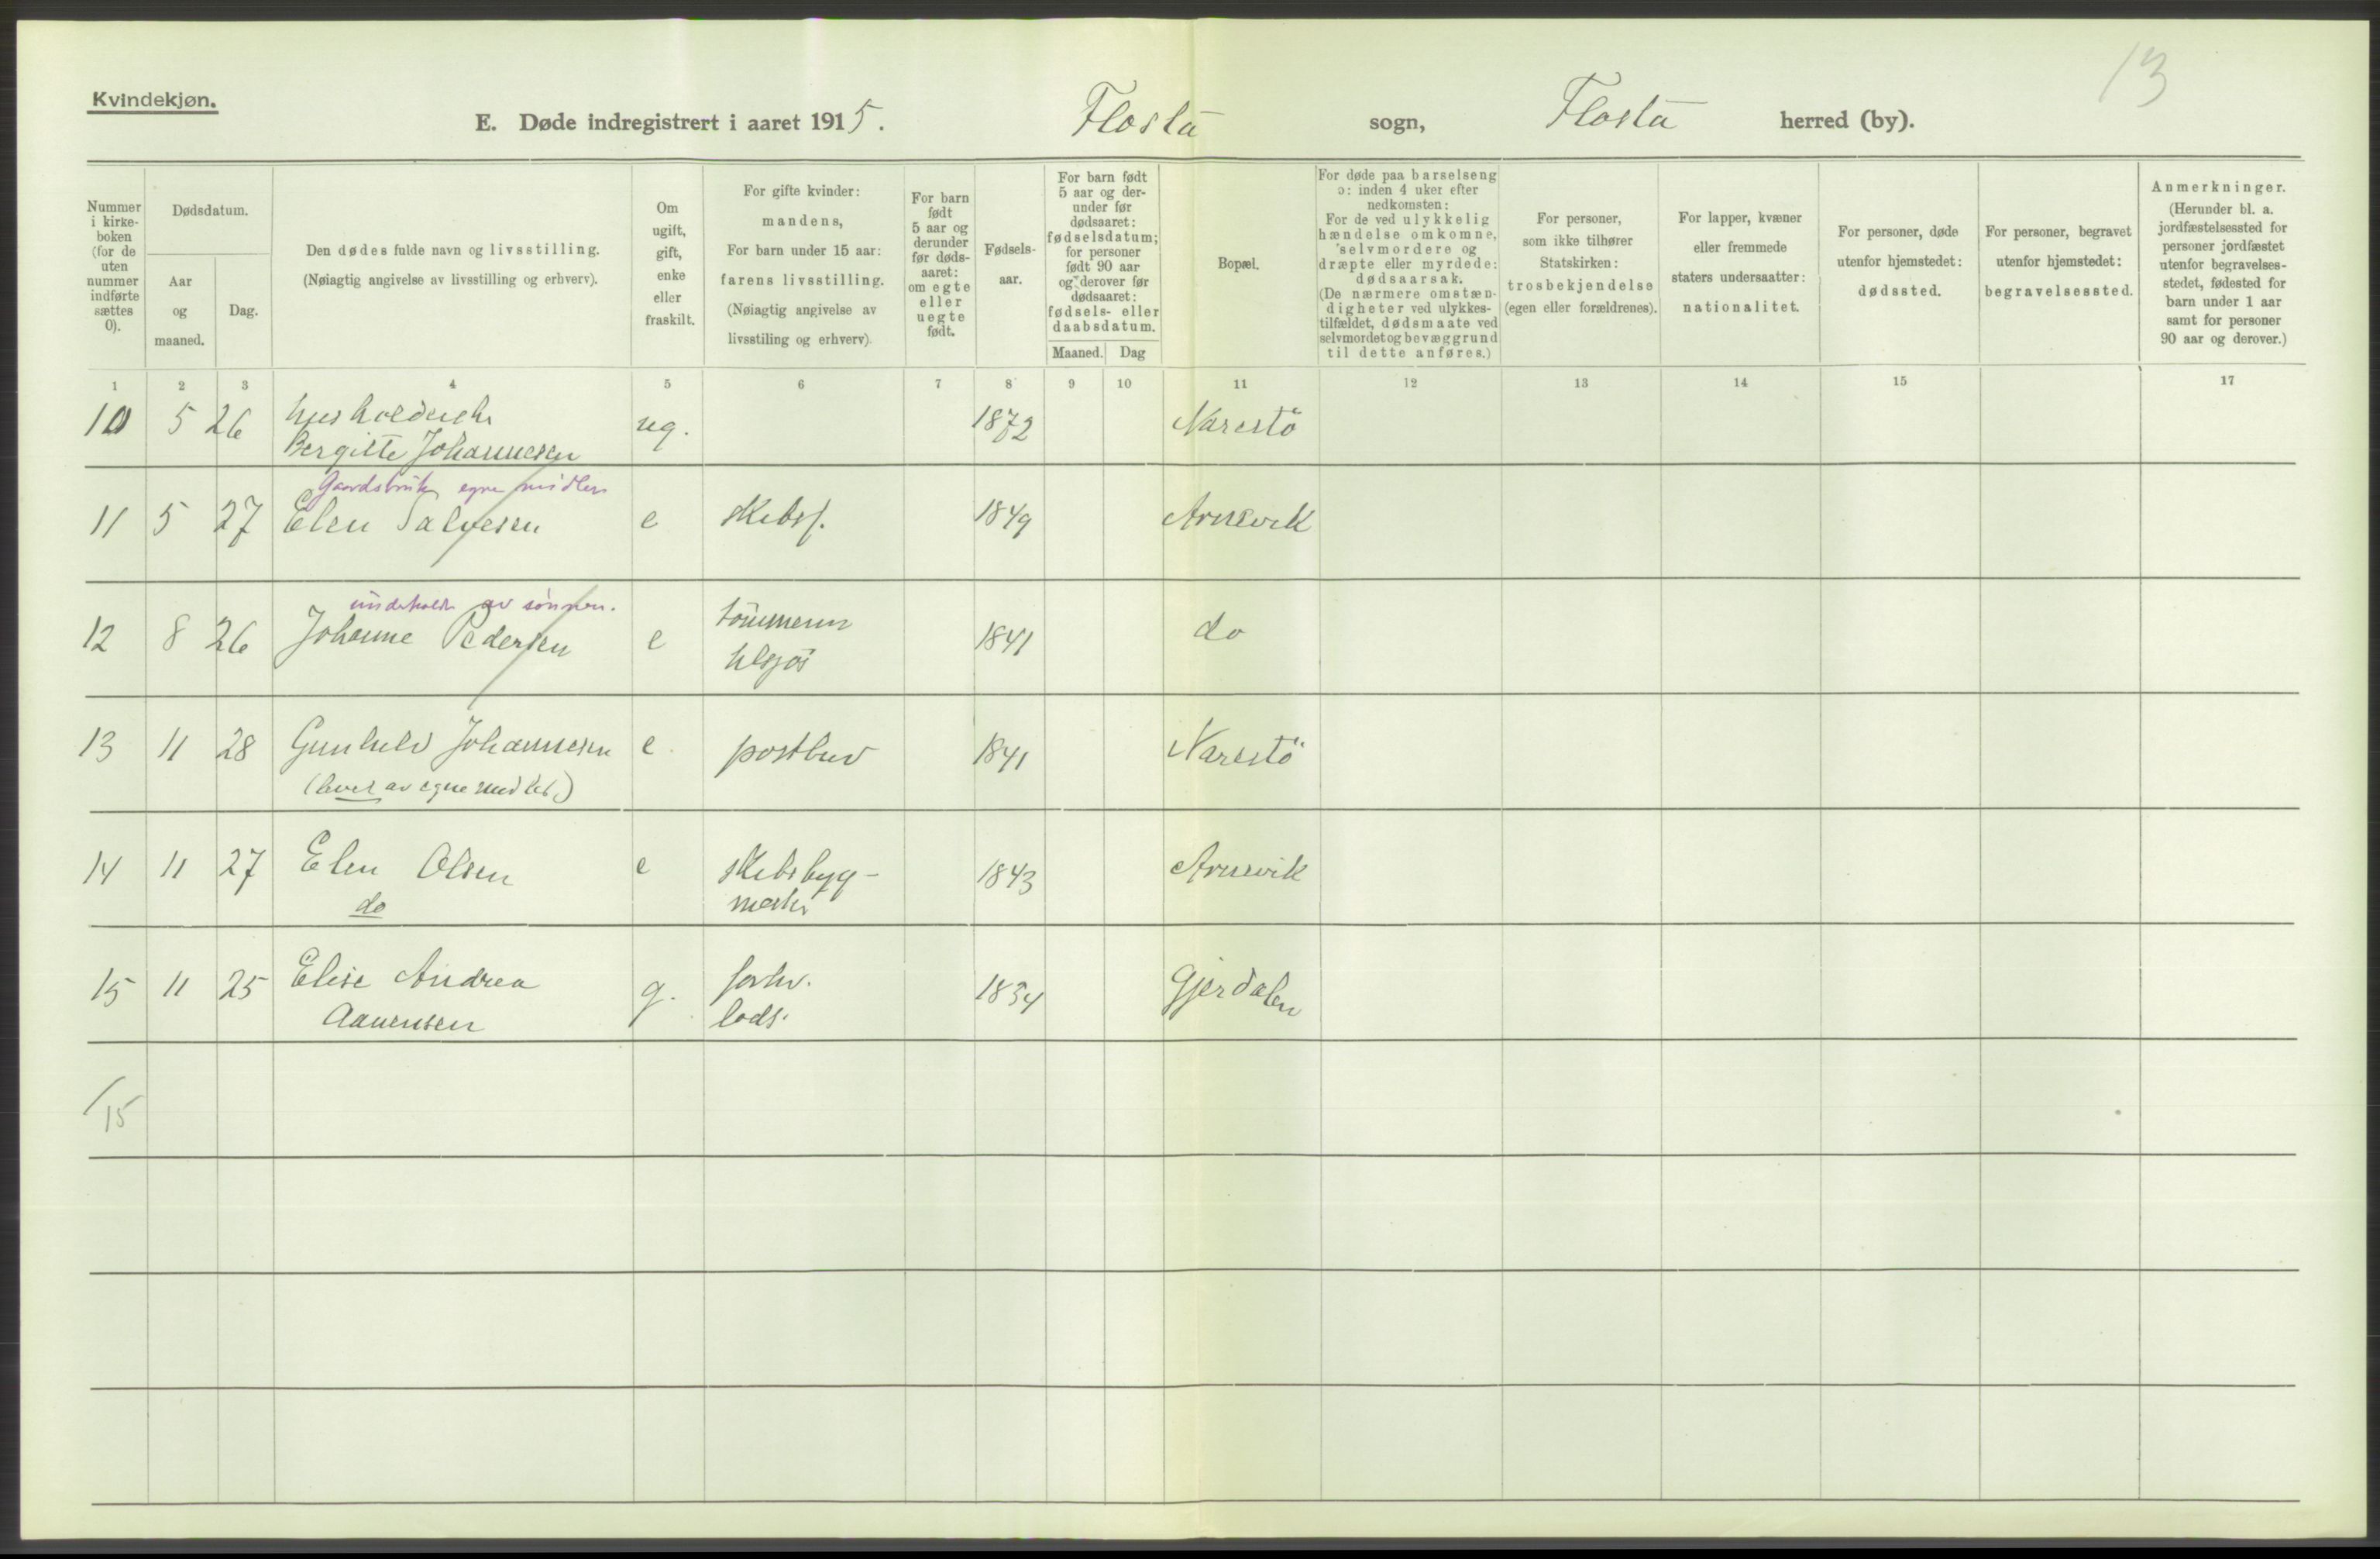 13
Kvindekjøn.
E. Døde indregistrert i aaret 1915. Flosta sogn, Flosta herred (by).
Nummer i kirke-boken (for de uten nummer indførte sættes 0).
Dødsdatum.
Aar og maaned.
Dag.
Den dødes fulde navn og livsstilling.
(Nøiagtig angivelse av livsstilling og erhverv).
Om ugift, gift, enke eller fraskilt.
For gifte kvinder:
mandens,
For barn under 15 aar:
farens livsstilling.
(Nøiagtig angivelse av
livsstiling og erhverv).
For barn født 5 aar og derunder før døds-aaret: om egte eller uegte født.
Fødsels-aar.
For barn født 5 aar og der-under før dødsaaret: fødselsdatum; for personer født 90 aar og derover før dødsaaret: fødsels- eller daabsdatum.
Maaned. Dag
Bopæl.
For døde paa barselseng ɔ: inden 4 uker efter nedkomsten:
For de ved ulykkelig hændelse omkomne, selvmordere og dræpte eller myrdede: dødsaarsak.
(De nærmere omstæn-digheter ved ulykkes-tilfældet, dødsmaate ved selvmordet og bevæggrund til dette anføres.)
For personer, som ikke tilhører Statskirken: trosbekjendelse (egen eller forældrenes).
For lapper, kvæner eller fremmede staters undersaatter: nationalitet.
For personer, døde utenfor hjemstedet: dødssted.
For personer, begravet utenfor hjemstedet: begravelsessted.
Anmerkninger.
(Herunder bl. a. jordfæstelsessted for personer jordfæstet utenfor begravelses-stedet, fødested for barn under 1 aar samt for personer 90 aar og derover.)
1 2 3 4 5 6 7 8 9 10 11 12 13 14 15 17
10 5 26 husholdersk ug. 1872 Narestö
Bergitte Johannesen
Gaardsbruk, egne midler
11 5 27 Elen Salvesen e skibsf. 1849 Arnevik
underholdt av sønnen.
12 8 26 Johanne Pedersen e tömmerm 1841 do
13 11 28 Gunhild Johannesen e. postbud 1841 Narestö
(lever av egne midler)
14 11 27 Elen Olsen e skibsbyg- 1843 Arnevik
do mester
15 11 25 Elise Andrea g. forhv. 1834 Gjerdalen
Aanensen lods.
/15